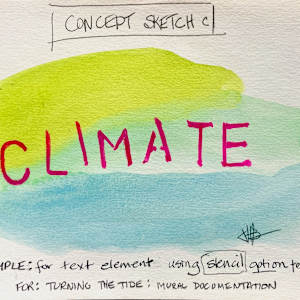 CONCEPT SKETCH C
CLIMATE
MPLE: for text element using stencil option te
FOR: TURNING THE TIDE: MURAL DOCUMENTATION